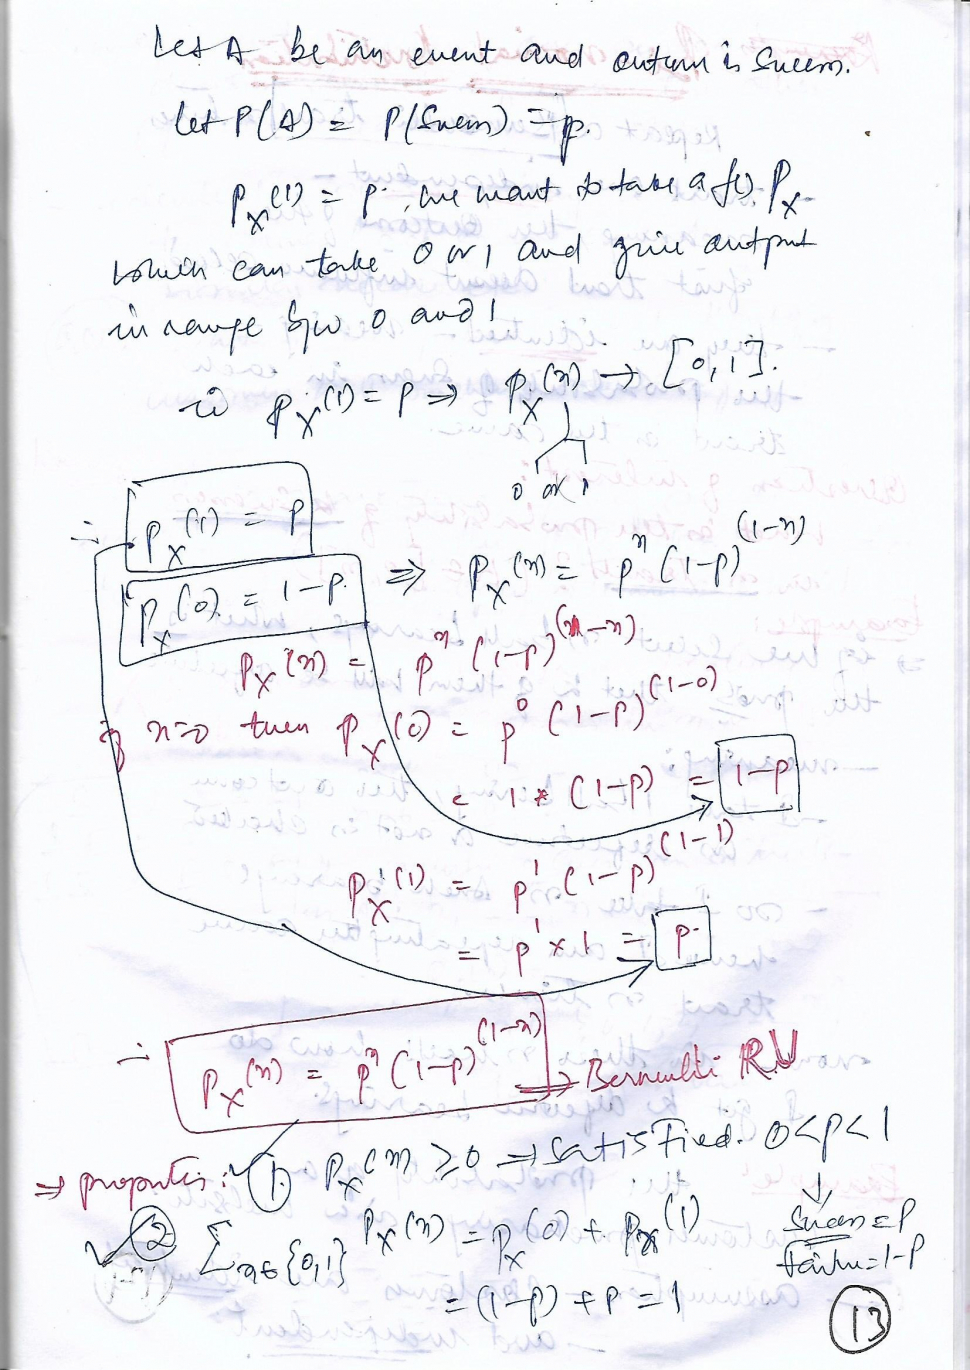 Let A be an event and outcom is Success.
Let P(A) = P(Success) = p.
P_X(1) = p. we want to take a f(). P_X
which can take 0 or 1 and give output
in range b/w 0 and 1
P_X(1) = P ⇒ P_X(x) → [0,1].
0 or 1
∴ P_X(1) = P
P_X(0) = 1-P. ⇒ P_X(x) = p^x (1-p)^(1-x)
P_X(x) = p^x (1-p)^(1-x)
if x=0 then P_X(0) = p^0 (1-p)^(1-0)
= 1 * (1-p) = 1-p
P_X(1) = p^1 (1-p)^(1-1)
= p^1 x 1 = p.
∴ P_X(x) = p^x (1-p)^(1-x) ⇒ Bernoulli RV
⇒ properties: ✓ 1. P_X(x) ≥ 0 → Satisfied. 0<p<1
✓ 2 ∑x∈{0,1} P_X(x) = P_X(0) + P_X(1)
Success = P
failure = 1-P
= (1-p) + p = 1
13